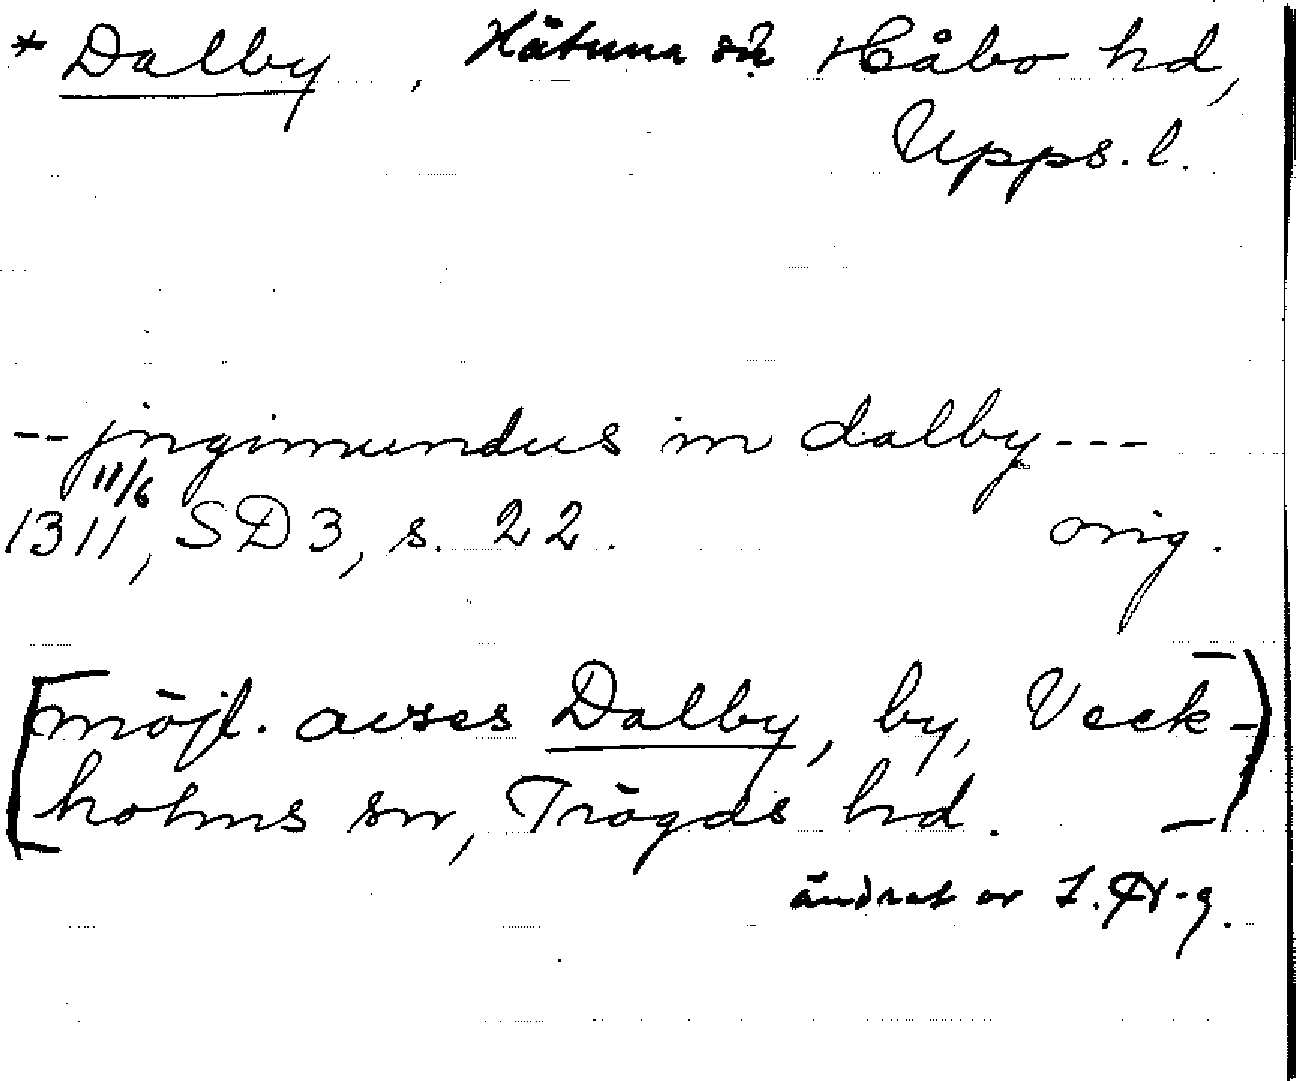 * Dalby, Håtuna sn? Håbo hd,
Upps. l.
-- jngimundus in dalby---
11/6
1311, SD 3, s. 22. orig.
[möjl. avses Dalby, by, Veck-
holms sn, Trögds hd.]
ändrat av